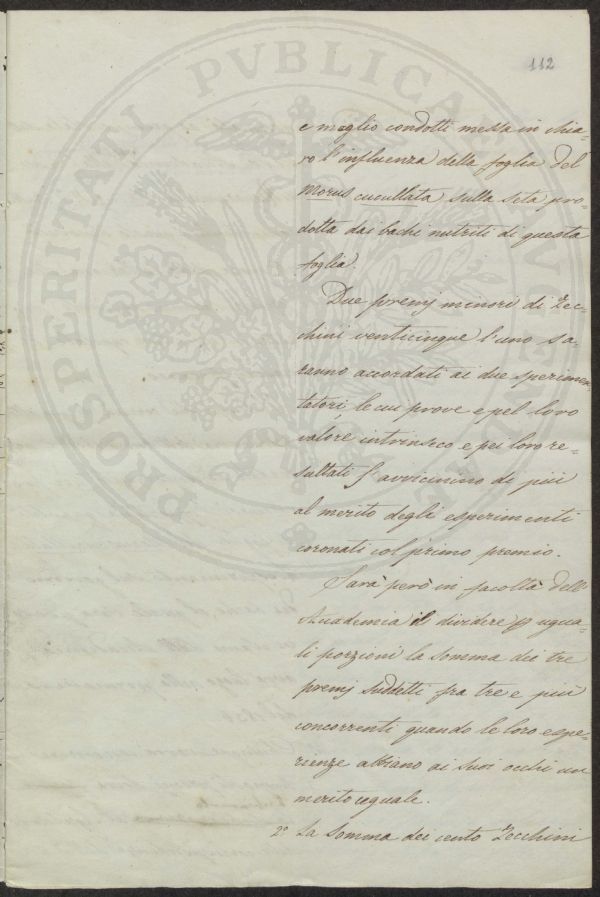 112
e meglio condotti messa in chia=
ro l'influenza della foglia del
Morus cucullata sulla seta pro=
dotta dai bachi nutriti di questa
foglia.
Due premj minori di Zec=
chini venticinque l'uno sa=
ranno accordati ai due sperimen=
tatori le cui prove e pel loro
valore intrinseco e pei loro re=
sultati s'avvicinino di più
al merito degli esperimenti
coronati col primo premio.
Sarà però in facoltà dell'
Accademia il dividere in ugua=
li porzioni la somma dei tre
premj suddetti fra tre e più
concorrenti quando le loro espe=
rienze abbiano ai suoi occhi un
merito eguale.
2° La somma dei cento Zecchini
PROSPERITATI PVBLICAE